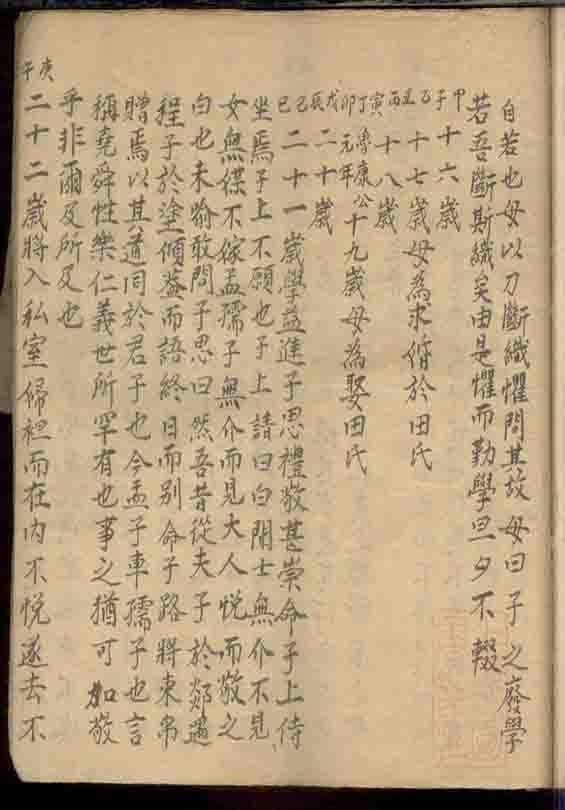 自若也母以刀斷織懼問其故母曰子之廢學
若吾斷斯織矣由是懼而勤學旦夕不輟
甲子十六歲
乙丑十七歲母為求俻於田氏
丙寅十八歲
丁卯魯康公元年十九歲母為娶田氏
戊辰二十歲
己巳二十一歲學益進子思禮敬甚崇命子上侍
坐焉子上不願也子上請曰白聞士無介不見
女無媒不嫁孟孺子無介而見大人悅而敬之
白也未喻敢問子思曰然吾昔從夫子於郯遇
程子於塗傾蓋而語終日而別命子路將束帛
贈焉以其道同於君子也今孟子車孺子也言
稱堯舜性樂仁義世所罕有也事之猶可加敬
乎非爾及所及也
庚午二十二歲將入私室婦袒而在內不悅遂去不